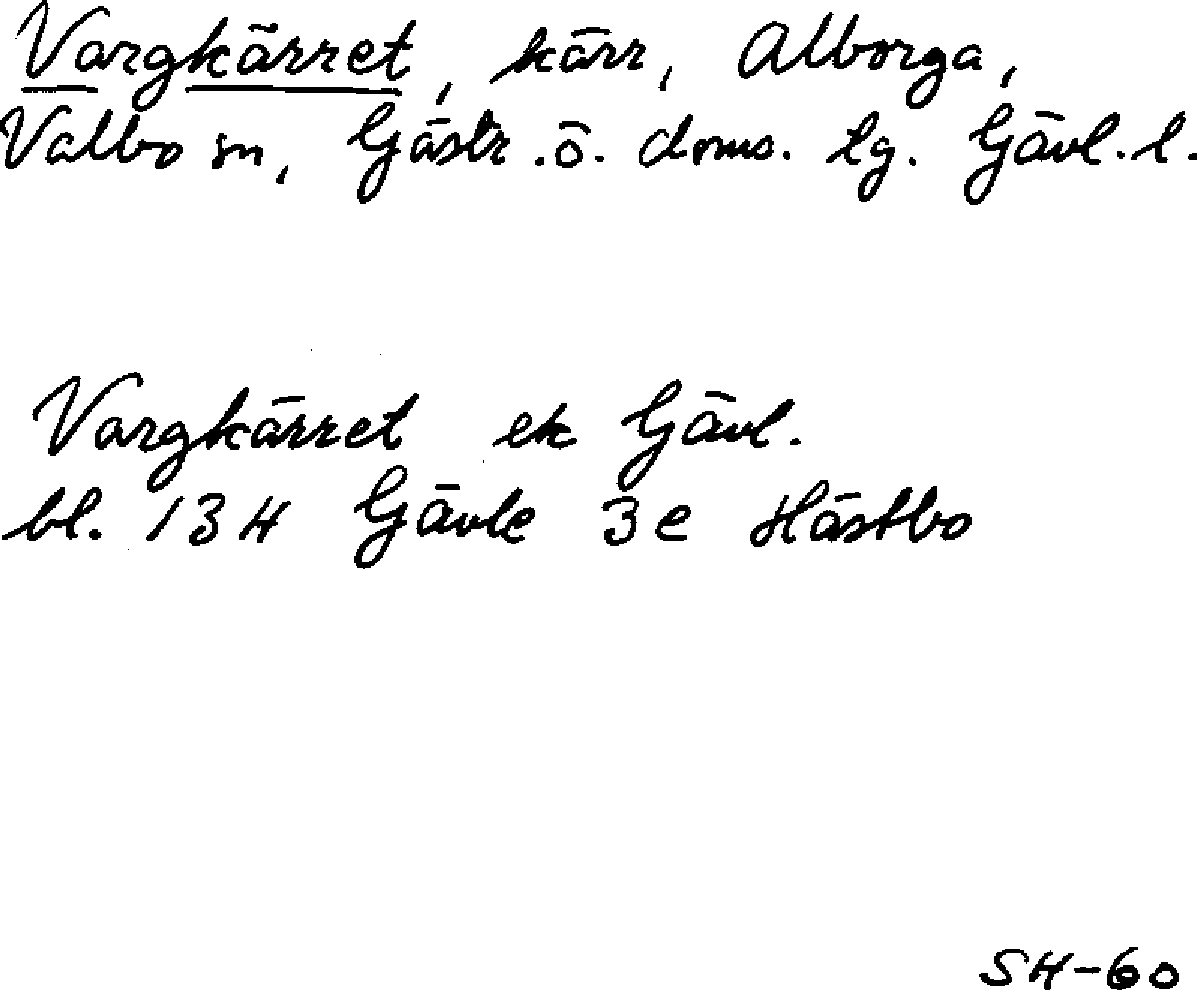 Vargkärret, kärr, Alborga,
Valbo sn, Gästr. ö. doms. lg. Gävl. l.
Vargkärret ek Gävl.
bl. 134 Gävle 3e Hästbo
SH-60